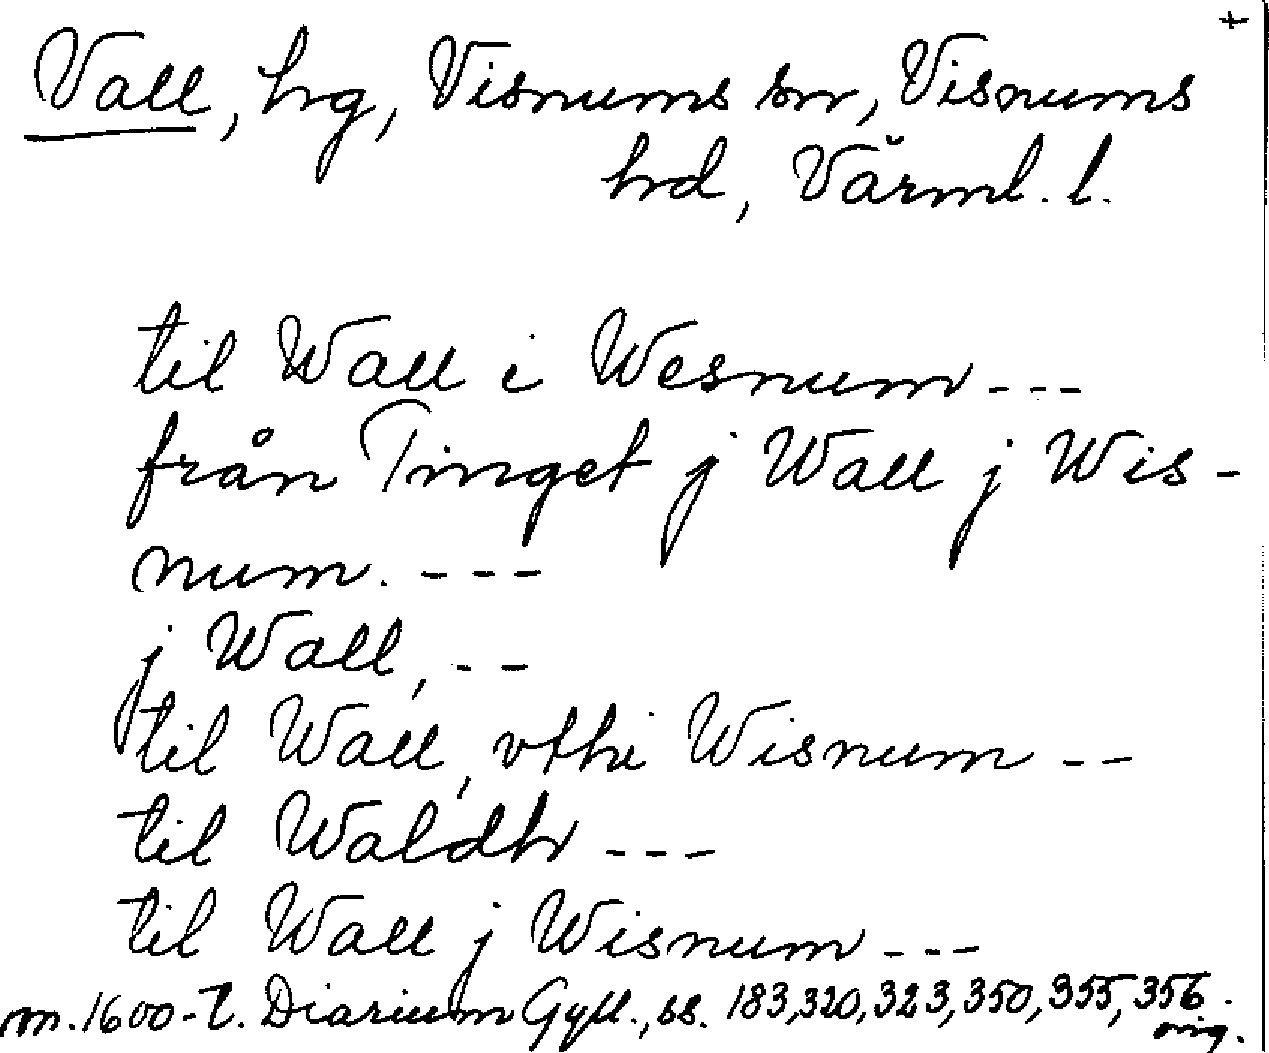 +
Vall, hg, Visnums sn, Visnums
hd, Värml. l.
til Wall i Wesnum ---
från Tinget j Wall j Wis-
num. ---
j Wall, --
til Wall, vthi Wisnum --
til Waldh ---
til Wall j Wisnum ---
m. 1600-t. Diarium Gyll., ss. 183, 320, 323, 350, 355, 356.
orig.